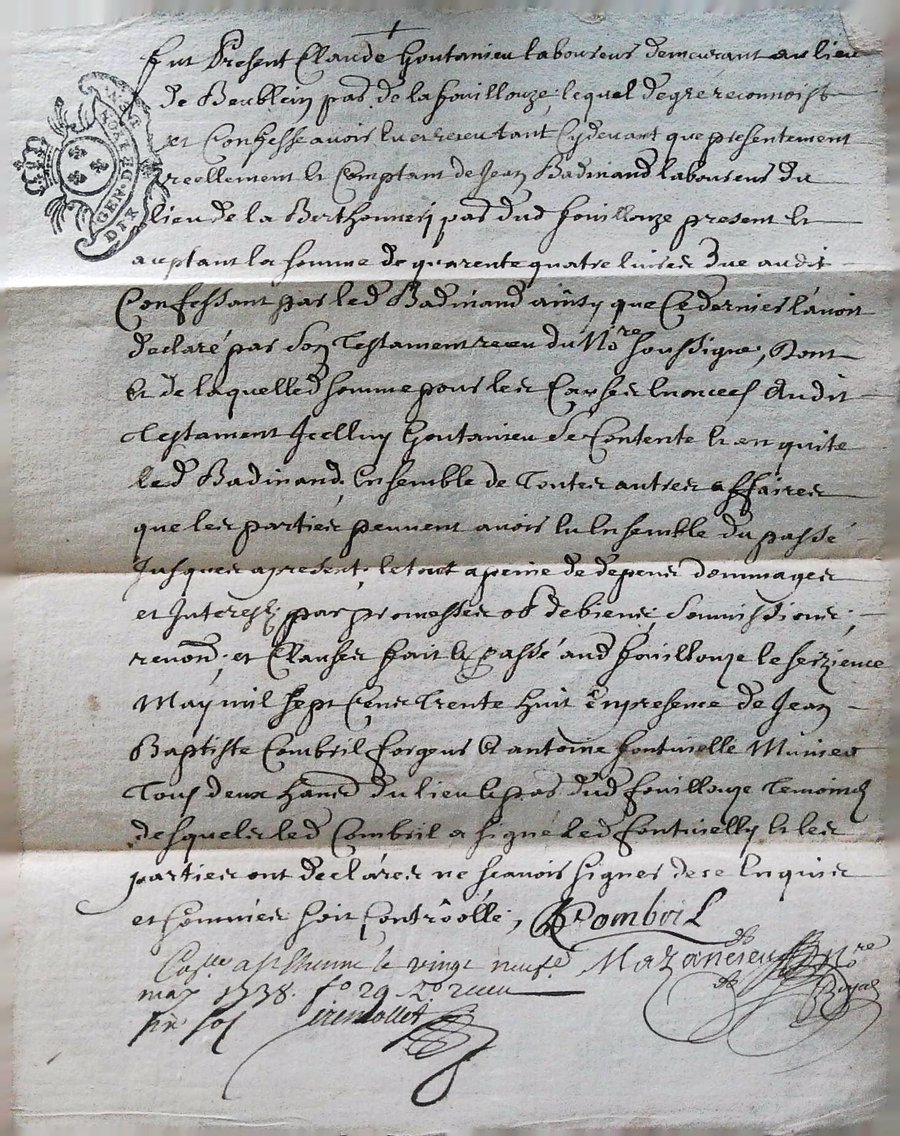 GEN · DE LYON
DIX
Fut Present Claude Goutanieu laboureur demeurant au lieu
de Beublein par. de lafouillouze, lequel degre reconnoist
et Confesse avoir Eu et receu tant Cydevant que presentement
reellement et Comptant de Jean Badinand laboureur du
lieu de la Berthonnery par. dud fouillouze present et
aceptant la somme de quarente quatre livres Due audit
Confessant par led Badinand ainsy que Cedernier l'avoit
declaré par son Testament receu du Nore soussigné, Dont
et de laquelled somme pour les Causes Enoncees Audit
Testament Jcelluy Goutanieu se Contente et en quite
led Badinand, Ensemble de Toutes autres affaires
que les parties peuvent avoir Eu Ensemble du passé
Jusques apresent, le tout apeine de depens dommages
et Interests par promesses ob. debiens, soumissions,
renond, et Clauses fait et passé aud fouillouze le seizieme
May mil sept Cens Trente huit Enpresence de Jean
Baptiste Combril forgeur et antoine fontvielle Munier
Tous deux habd du lieu et par. dud fouillouze Temoins
desquels led Combril a signé led fontvielle et les
parties ont declarés ne scavoir signer dece Enquis
et sommés soit Controollé, Combril
Mazancieu Nre
Royal
Collé a St Etienne le vingt neufe
may 1738. fo 29 receu
six sols